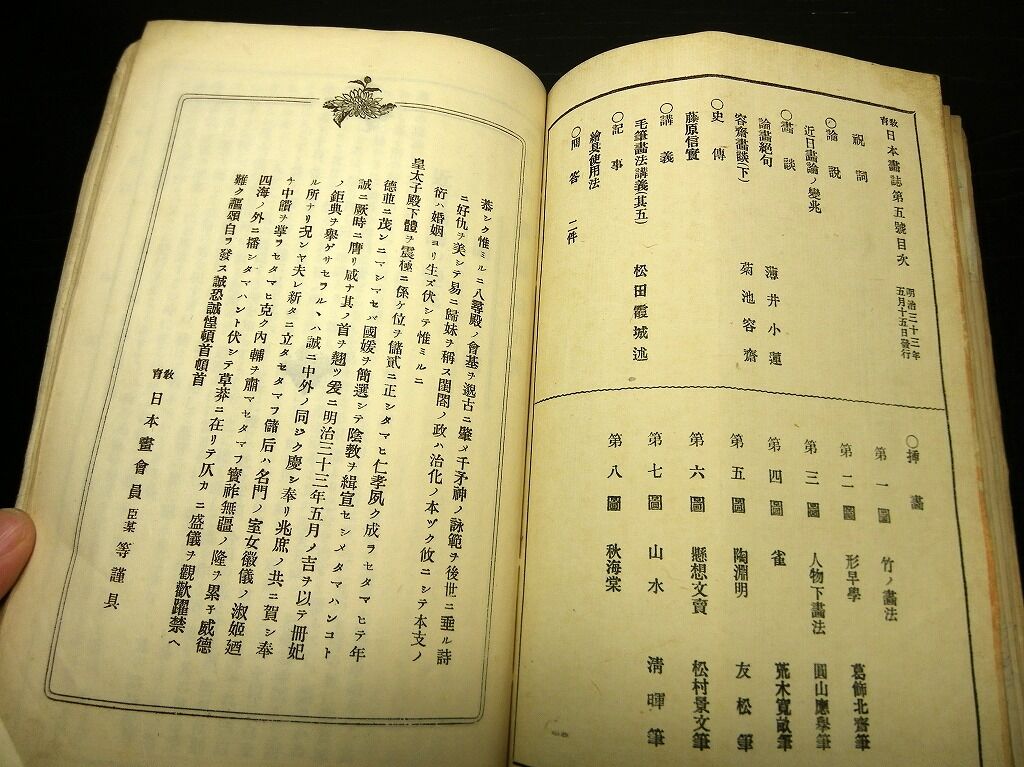 教育 日本畫誌第五號目次 明治三十三年五月十五日發行
祝詞
○論説
近日畫論ノ變兆
○畫談
論畫絕句 薄井小蓮
容齋畫談(下) 菊池容齋
○史傳
藤原信實
○講義
毛筆畫法講義(其五) 松田霞城述
○記事
繪具使用法
○問答 二件
○挿畫
第一圖 竹ノ畫法
第二圖 形早學 葛飾北齋筆
第三圖 人物下畫法 圓山應擧筆
第四圖 雀 荒木寬畝筆
第五圖 陶淵明 友松筆
第六圖 懸想文賣 松村景文筆
第七圖 山水 淸暉筆
第八圖 秋海棠
恭シク惟ミルニ八尋殿ノ會基ヲ邈古ニ肇メ千矛神ノ詠範ヲ後世ニ垂ル詩
ニ好仇ヲ美シテ易ニ歸妹ヲ稱ス閨閤ノ政ハ治化ノ本ヅク攸ニシテ本支ノ
衍ハ婚姻ヨリ生ズ伏シテ惟ミルニ
皇太子殿下體ヲ震極ニ係ケ位ヲ儲貳ニ正シタマヒ仁孝夙ク成ラセタマヒテ年
德並ニ茂ンニマシマセバ國媛ヲ簡選シテ陰敎ヲ緝宣セシメタマハンコト
誠ニ厥時ニ膺リ咸ナ其ノ首ヲ翹ツ爰ニ明治三十三年五月ノ吉ヲ以テ冊妃
ノ鉅典ヲ擧ゲサセラル、ハ誠ニ中外ノ同ジク慶シ奉リ兆庶ノ共ニ賀シ奉
ル所ナリ况ンヤ夫レ新タニ立タセタマフ儲后ハ名門ノ室女徽儀ノ淑姬廼
チ中饋ヲ掌ラセタマヒ克ク內輔ヲ肅マセタマフ寶祚無疆ノ隆ヲ累子威德
四海ノ外ニ播シタマハント伏シテ草莽ニ在リテ仄カニ盛儀ヲ觀歡躍禁ヘ
難ク謳頌自ラ發ス誠恐誠惶頓首頓首
教育 日本畫會員 臣某 等謹具